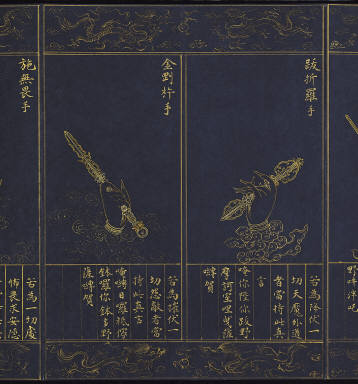 野吽泮吒
跋折羅手
若為降伏一
切天魔外道
者當持此真
言
唵你陛你跋野
摩訶室哩曳薩
嚩賀
金剛杵手
若為摧伏一
切怨敵者當
持此真言
唵嚩日羅祇儞
鉢羅你鉢多野
薩嚩賀
施無畏手
若為一切處
怖畏求安隱